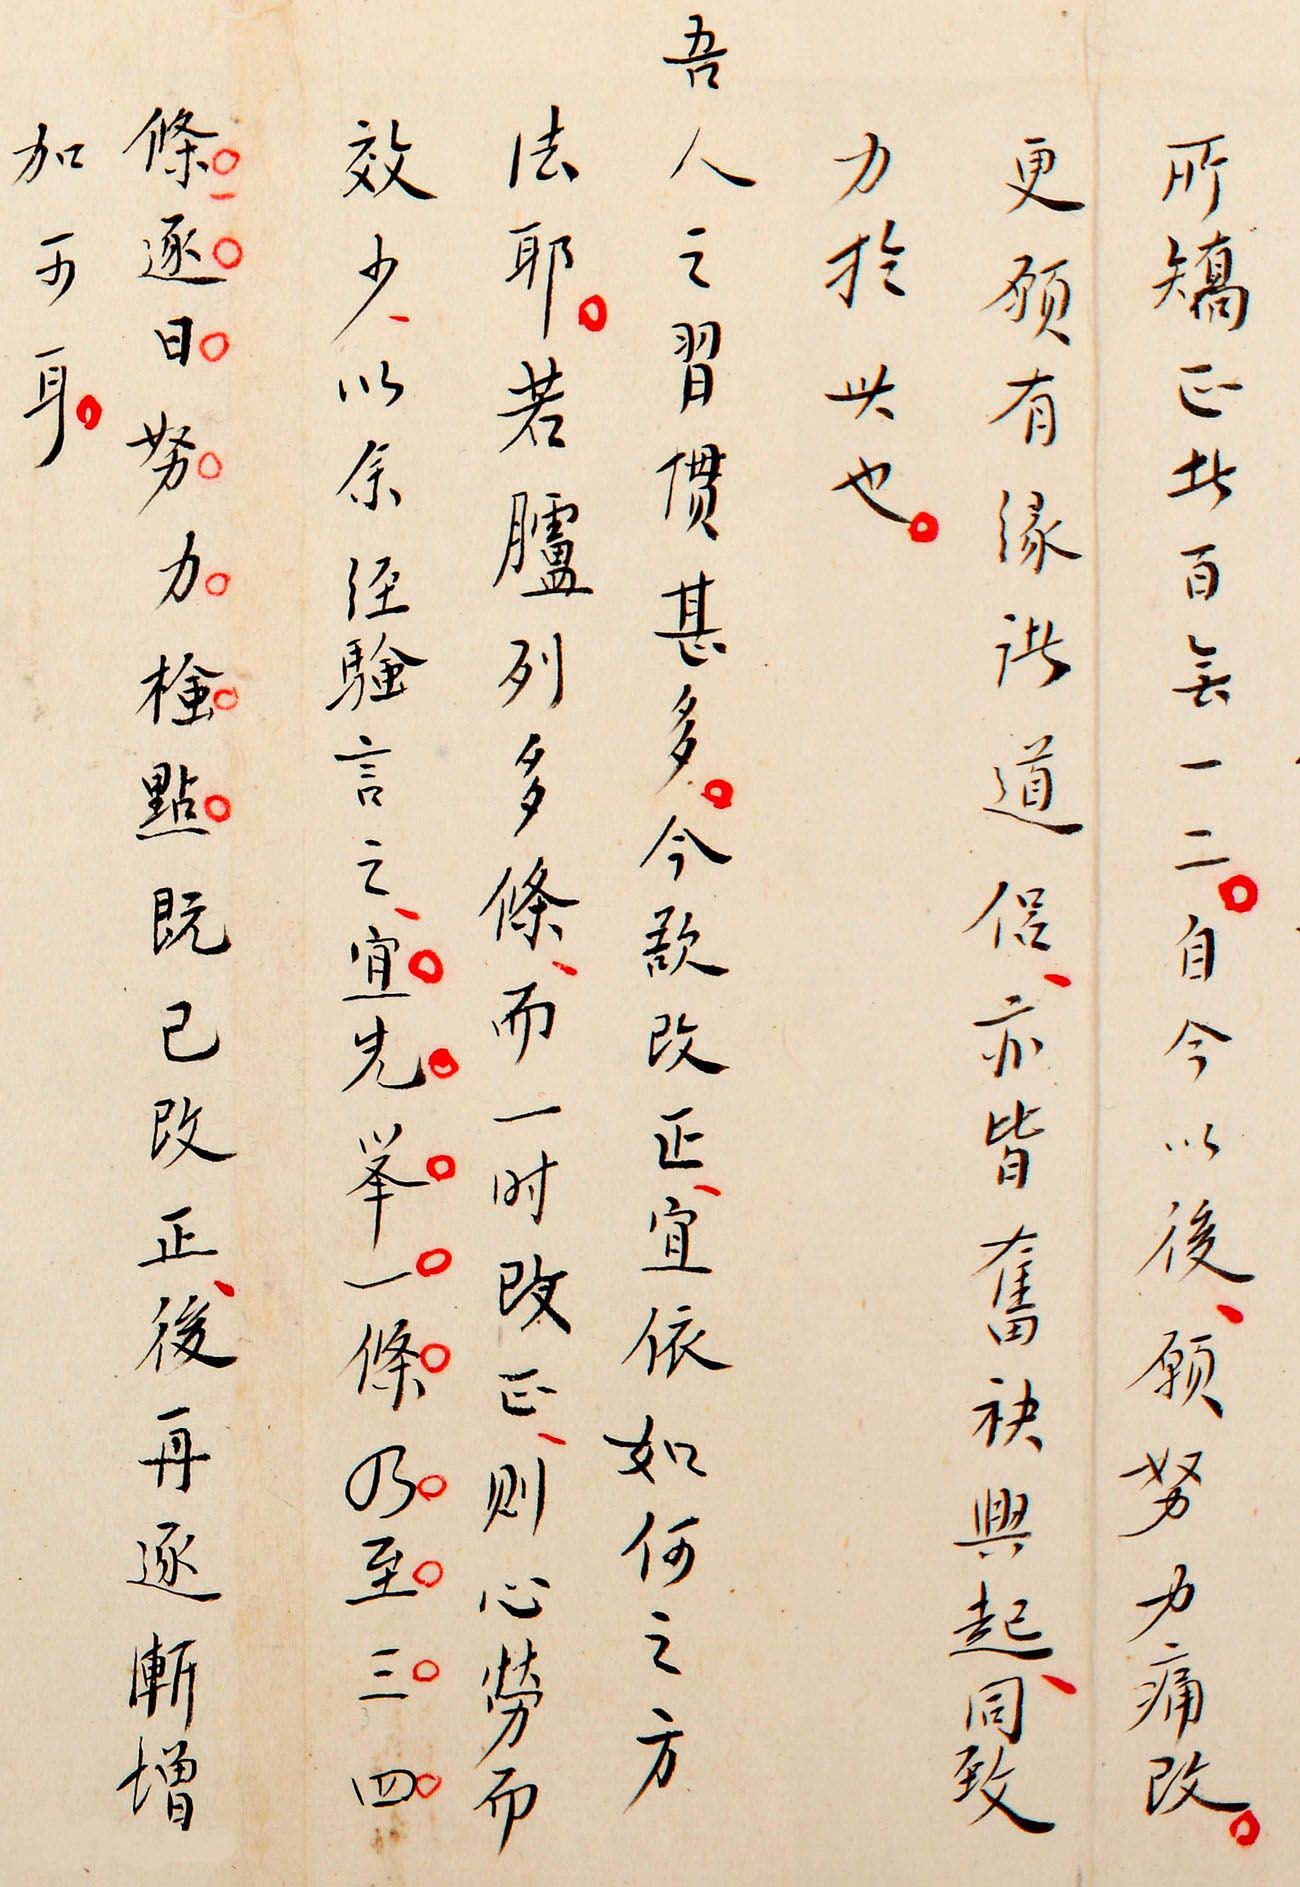 所矯正者百無一二。自今以後、願努力痛改。
更願有緣諸道侶、亦皆奮袂興起、同致
力於此也。
吾人之習慣甚多。今欲改正、宜依如何之方
法耶。若臚列多條、而一时改正、則心勞而
效少、以余经驗言之、宜先举一條乃至三四
條、逐日努力檢點既已改正、後再逐漸增
加可耳。